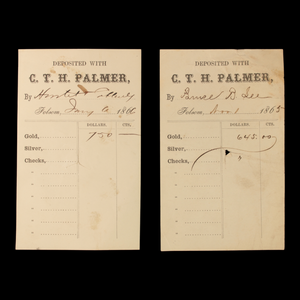 DEPOSITED WITH
C. T. H. PALMER,
By
Folsom, Jany 6 1866
DOLLARS. CTS.
Gold, 750
Silver,
Checks,
DEPOSITED WITH
C. T. H. PALMER,
By
Folsom, Nov 1 1865
DOLLARS. CTS.
Gold, 645.00
Silver,
Checks,